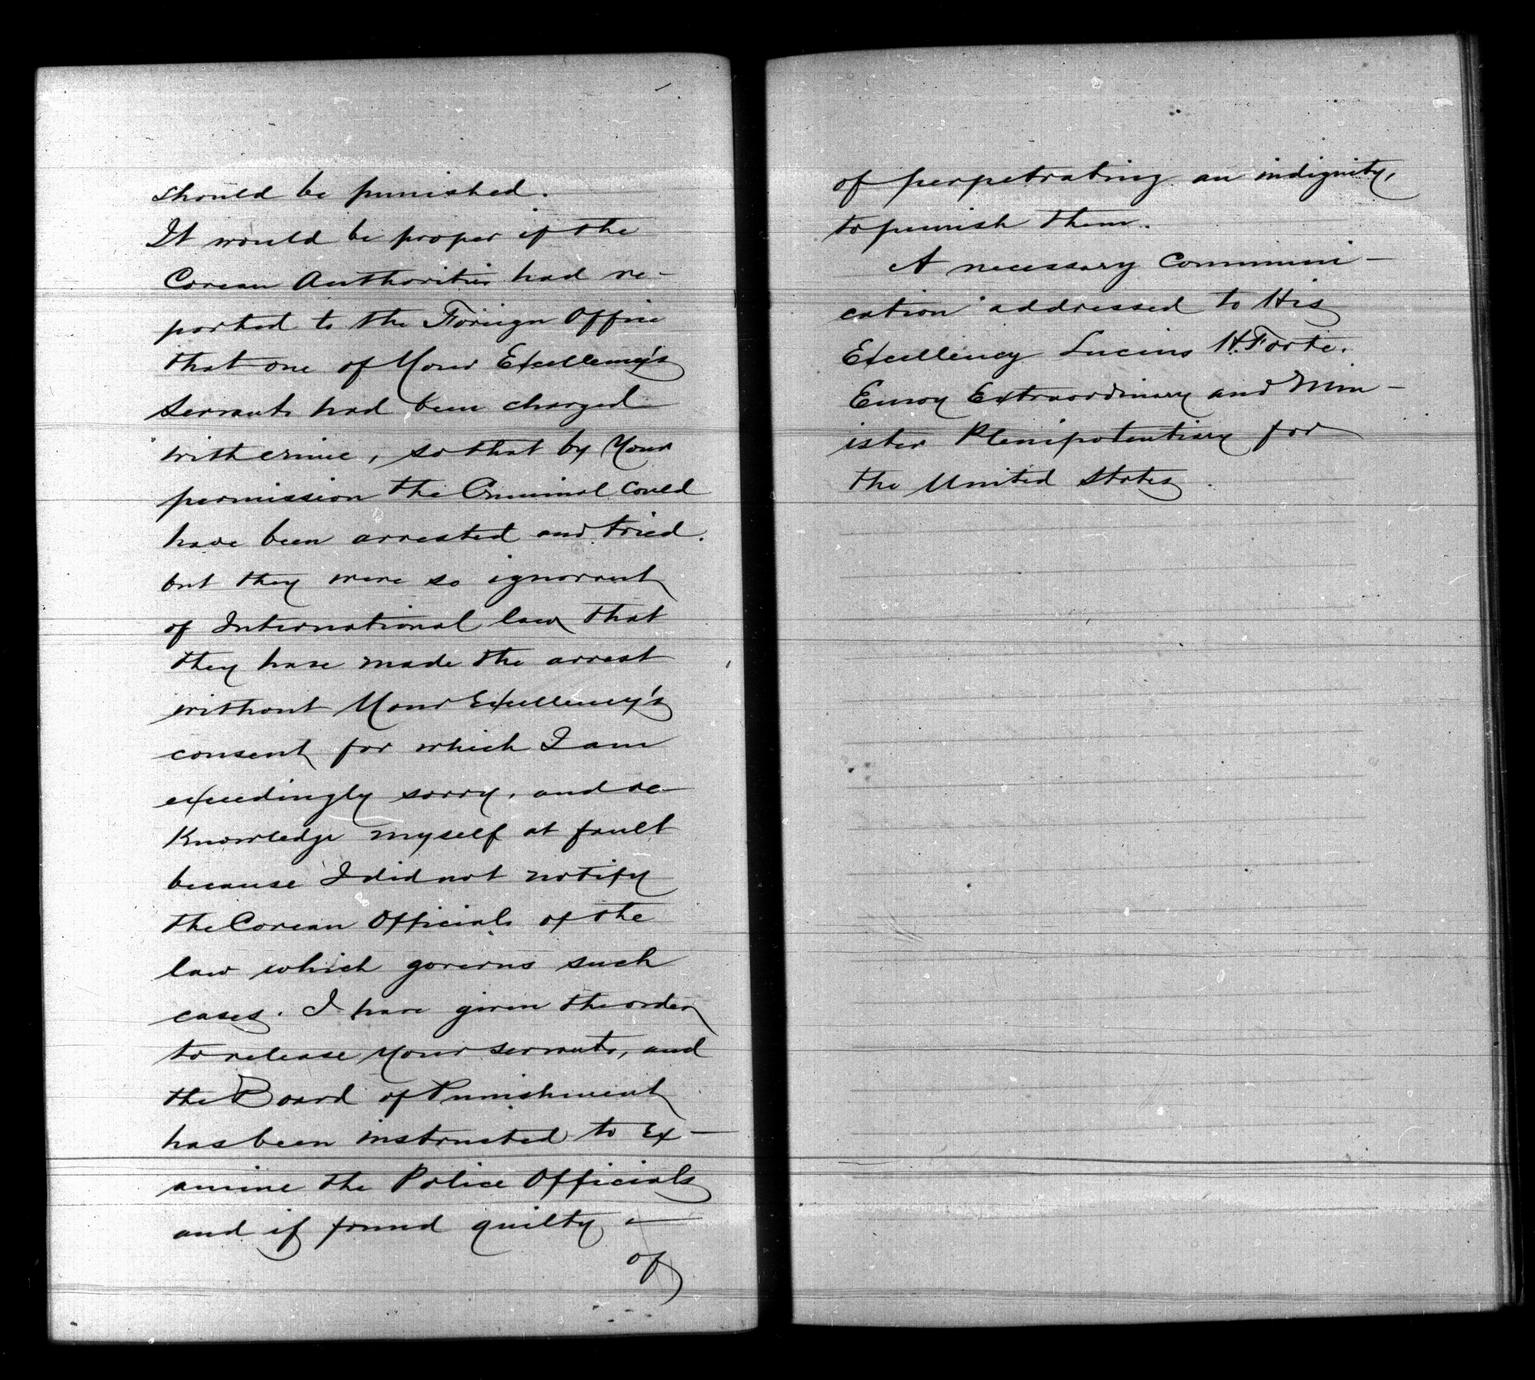 should be punished.
It would be proper if the
Corean Authorities had re-
ported to the Foreign Office
that one of Your Excellency's
Servants had been charged
with crime, so that by Your
permission the Criminal could
have been arrested and tried.
but they were so ignorant
of International law that
they have made the arrest
without Your Excellency's
consent for which I am
exceedingly sorry, and ac-
knowledge myself at fault
because I did not notify
the Corean Officials of the
law which governs such
cases. I have given the order
to release your servants, and
the Board of Punishment
has been instructed to Ex-
amine the Police Officials
and if found guilty -
of
of perpetrating an indignity,
to punish them.
A necessary Communi-
cation addressed to His
Excellency Lucius H. Foote.
Envoy Extraordinary and Min-
ister Plenipotentiary for
the United States.